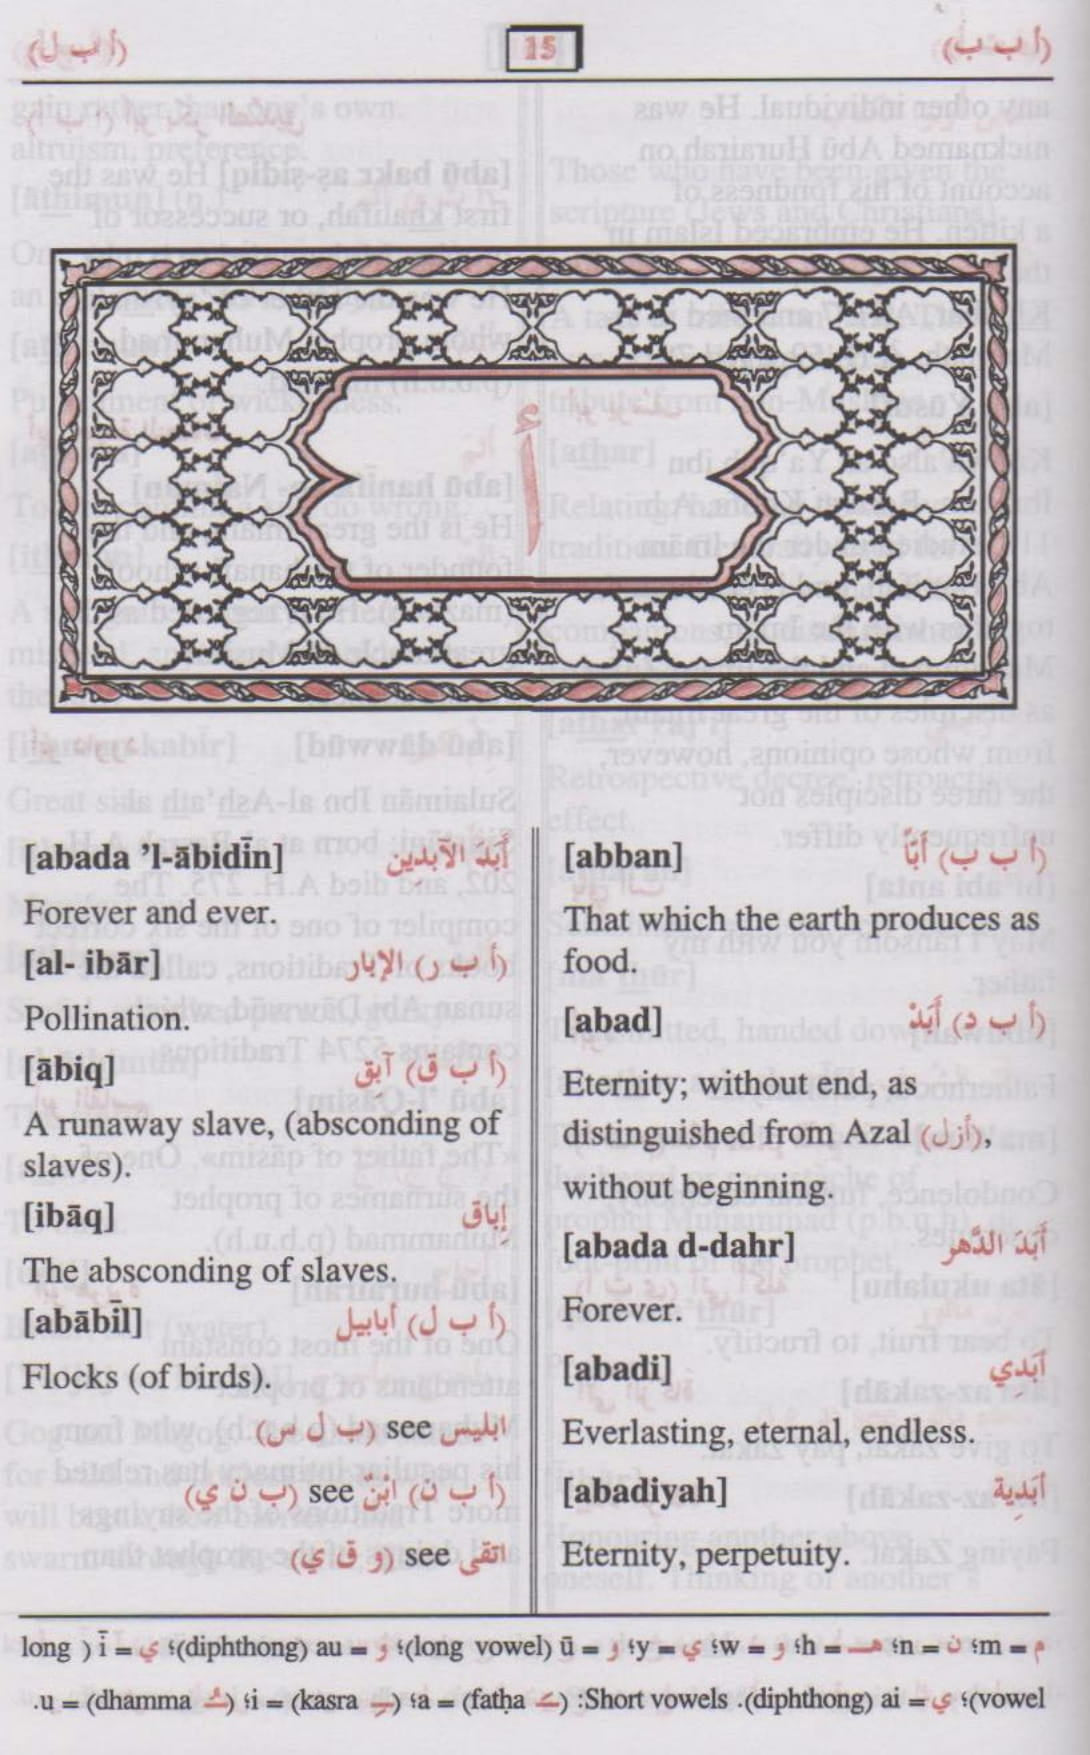 (أ ب ب)
15
(أ ب ل)
أ
[abban] (أ ب ب) أبًّا
That which the earth produces as
food.
[abad] (أ ب د) أَبَدْ
Eternity; without end, as
distinguished from Azal (أزل),
without beginning.
[abada d-dahr] أَبَدَ الدَّهر
Forever.
[abadi] أَبَدي
Everlasting, eternal, endless.
[abadiyah] أَبَدِية
Eternity, perpetuity.
[abada ’l-ābidīn] أَبَدَ الآبِدِين
Forever and ever.
[al- ibār] (أ ب ر) الإبار
Pollination.
[ābiq] (أ ب ق) آبق
A runaway slave, (absconding of
slaves).
[ibāq] إباق
The absconding of slaves.
[abābīl] (أ ب ل) أبابيل
Flocks (of birds).
ابليس see (ب ل س)
(أ ب ن) ابْنٌ see (ب ن ي)
اتقى see (و ق ي)
م = m؛ ن = n؛ هـ = h؛ و = w؛ ي = y؛ و = ū (long vowel)؛ وَ = au (diphthong)؛ ي = ī ( long
vowel)؛ ي = ai (diphthong). Short vowels: (ــَ fatḥa) = a؛ (ــِ kasra) = i؛ (ــُ dhamma) = u.